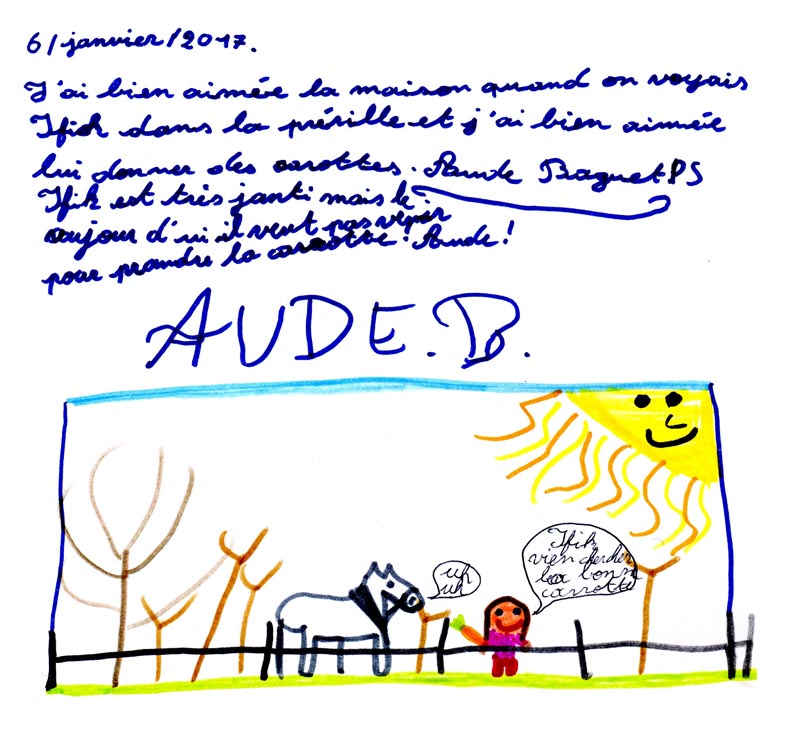 6/janvier/2017.
J'ai bien aimée la maison quand on voyais
Ifik dans la prérille et j'ai bien aimée
lui donner des carottes. Aude Baguet PS
Ifik est très janti mais le
aujour d'ui il veut pas venir
pour prandre la carotte! Aude!
AUDE.B.
uh
uh
Ifik
vien chercher
la bonne
carrotte